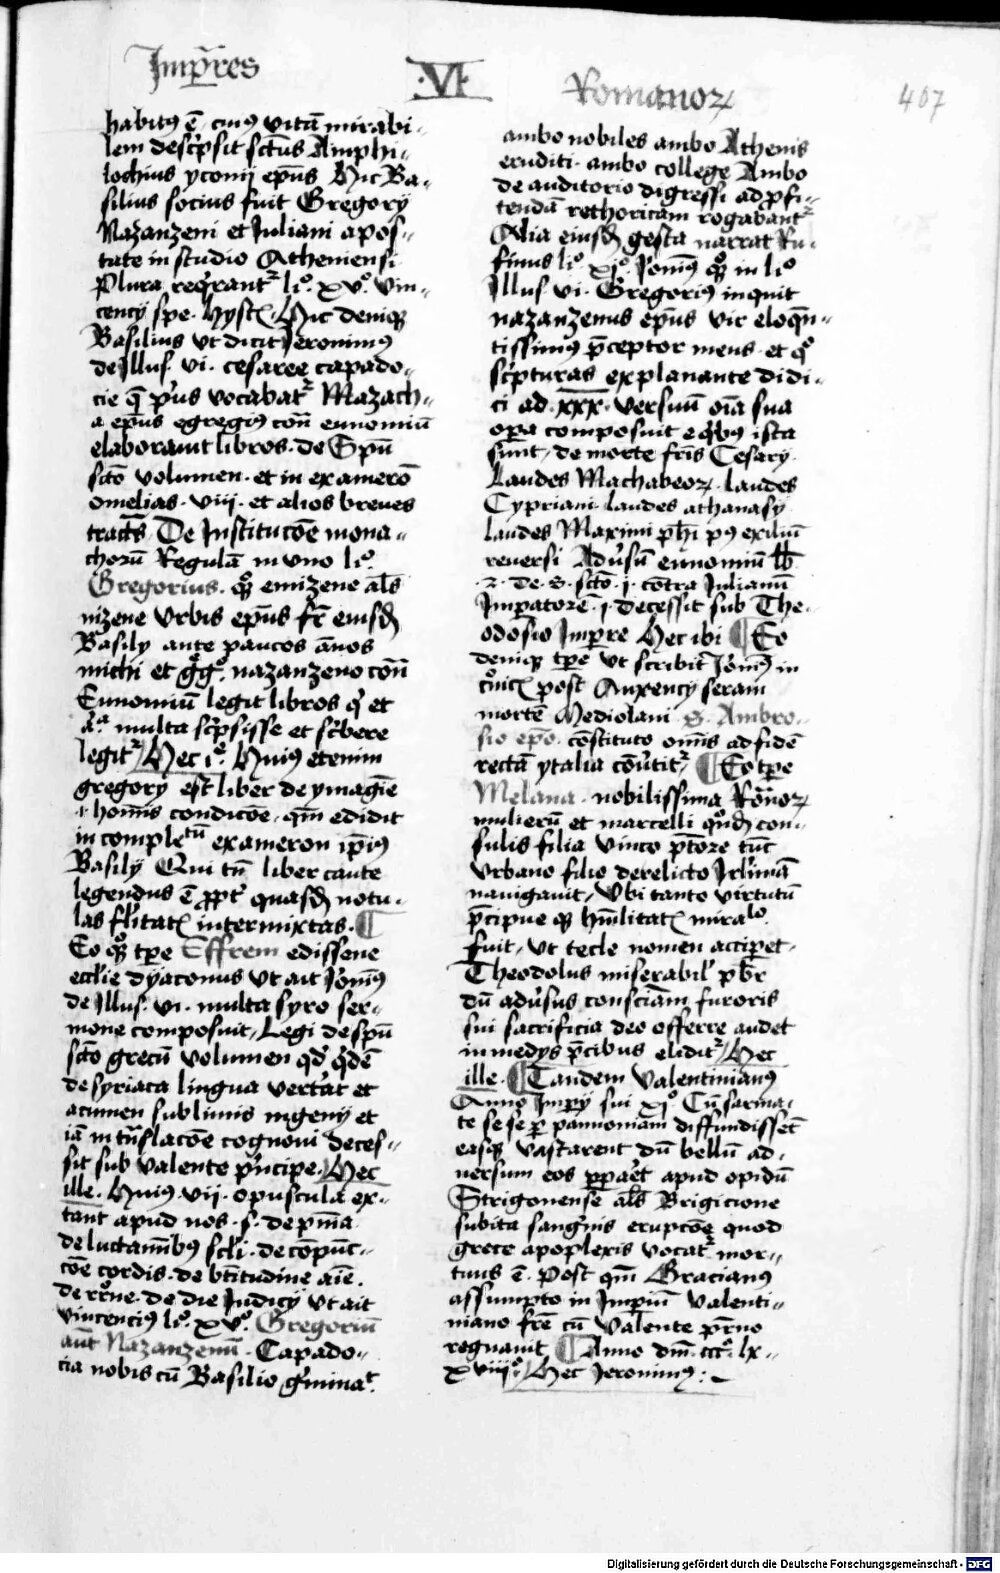 Imꝑ̃res
·VI·
Romanoꝝ
407
habitꝰ ē cuiꝰ vitā mirabi-
lem descͥpsit sctũs Amphi-
lochius yconij ep̃us Hic Ba-
silius socius fuit Gregorÿ
Nazanzeni et Iuliani apos-
tate in studio Atheniensi
Plura reqͥrantᷣ liº. xvº. vin-
cencÿ spe. hystꝭ. Hic deniqꝫ
Basilius vt dicit Jeronimꝰ
de Illus. vi. cesaree capado-
cie q̄ pͥus vocabatᷣ Mazach-
a ep̃us egregiꝰ cont̃ eunomiū
elaborauit libros. de Spũ
sctõ volumen. et in exameroͫ
omelias. viii. et alios breues
tractꝰs De Institucõe mona-
choꝝ Regulā in vno liº.
Gregorius. qͦꝫ emizene als̃
nizene vrbis ep̃us fr̃ eiusdꝫ
Basilÿ ante paucos ãnos
michi et gͤgͦ. nazanzeno cont̃
Eunomiū legit libros qͥ et
aͣ. multa scͥpsisse et scͥbere
legitᷣ Hec iᵉ. Huiꝰ etenim
gregorÿ est liber de ymagiē
hom̃is condicõe. qm̃ edidit
in completū exameron ip̃iꝰ
Basilÿ Qui tñ liber caute
legendus ē ꝓpt̃ quasdꝫ notu-
las fl̃itatꝭ intermixtas. ¶
Eo qͦꝫ tꝑe Effrem edissene
eccl̃ie dyaconus vt ait Jõniꝰ
de Illus. vi. multa syro ser-
mone composuit, Legi de spũ
sctõ grecū volumen qd̃ qͥdē
de syriaca lingua vert̃at et
acumen sublimis ingenÿ et
iā in tñslacõe cognoui deces-
sit sub valente pͥncipe. Hec
ille. Huiꝰ vii. opuscula ex-
tant apud nos. s. de p̄ma
de luctam̃ibꝰ scl̃i. de cõpūc-
cõe cordis. de bt̃itudine aĩe.
de rr̃one. de die Judicÿ vt ait
vincenciꝰ liº. xvº. Gregoriū
aut̃ Nazanzenū. Capado-
cia nobis cū Basilio gͥminat.
ambo nobiles ambo Athenis
eruditi. ambo college Ambo
de auditorio digressi ad ꝓfi-
tendā rethoricam rogabantᷣ
Alia eiusdꝫ gesta narrat Ru-
finus liº. xiº. Jõniꝰ qͦꝫ in liº
Illus. vi. Gregoriꝰ inquit
nazanzenus ep̃us vir eloqn̄-
tissimꝰ p̄ceptor meus. et qͦ
scͥpturas explanante didi-
ci ad. xxx. versuū oĩa sua
oꝑa composuit e qͥbꝰ ista
sunt, de morte fr̃is Cesarÿ.
Laudes Machabeoꝝ. laudes
Cypriani. laudes athanasÿ
laudes Maximi ph̃i pꝰ exiliū
reuersi Adũsū eunomiū lb̃
.2. de. S. sctõ. i. cõtra Iulianū
Imꝑatorē. i. decessit sub The-
odosio Imꝑre Hec ibi ¶ Eo
deniqꝫ tꝑe vt scribit Jõniꝰ in
cͦnicꝭ post Auxencÿ seram
mortē Mediolani S. Ambro-
sio ep̃o. cõstituto om̃is ad fidē
rectā ytalia cõũtitᷣ, ¶ Eo tꝑe
Melana. nobilissima Roñoꝝ
mulierū et marcelli qͦndꝫ con-
sulis filia vnico p̄tore tūc
vrbano filio derelicto Jrl̃imā
nauigauit, vbi tanto virtutū
p̄cipue qꝫ hm̃litatꝭ miralo
fuit, vt tecle nomen acciꝑet.
Theodolus miserabil̃ pb̃r
dū adũsus consciam furoris
sui sacrificia deo offerre audet
in medÿs p̄cibus eliditᷣ, Hec
ille. ¶ Tandem Valentinianꝰ
Anno Imꝑÿ sui xiº. Cū sarma-
te se se ꝑ pannoniam diffundissēt
easqꝫ vastarent dū bellū ad-
uersum eos ꝑpar̃et apud opidū
Strigonense als̃ Brigicione
subita sangͥnis erupcõe quod
grece apoplexis vocatᷣ mor-
tuus ē. Post qm̃ Gracianꝰ
assumpto in Imꝑiū Valenti-
niano fr̃e cū Valente pr̃uo
regnauit ¶ Anno dm̃. cccº. lx-
xviiiº. Hec Jeronimꝰ:~
Digitalisierung gefördert durch die Deutsche Forschungsgemeinschaft - DFG